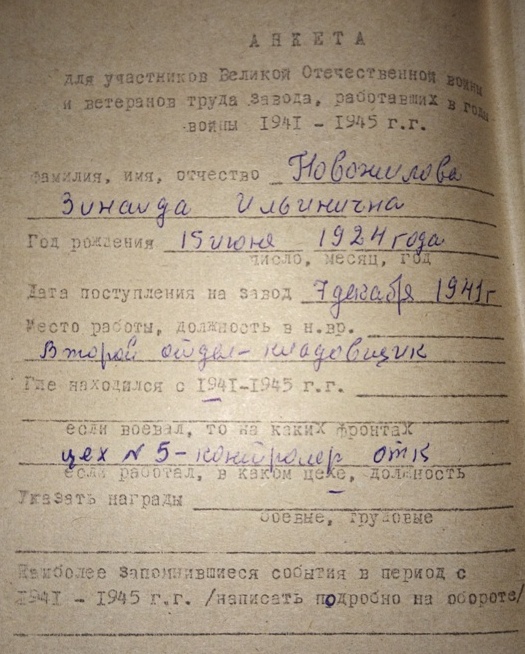 АНКЕТА
для участников Великой Отечественной войны
и ветеранов труда завода, работавших в годы
войны 1941 - 1945 г.г.
Фамилия, имя, отчество Новожилова
Зинаида Ильинична
Год рождения 15 июня 1924 года
число, месяц, год
Дата поступления на завод 7 декабря 1941 г
Место работы, должность в н.вр.
Второй отдел - кладовщик
Где находился с 1941-1945 г.г.
если воевал, то на каких фронтах
цех № 5 - контролер ОТК
если работал, в каком цехе, должность
Указать награды
боевые, трудовые
Наиболее запомнившиеся события в период с
1941 - 1945 г.г. /написать подробно на обороте/